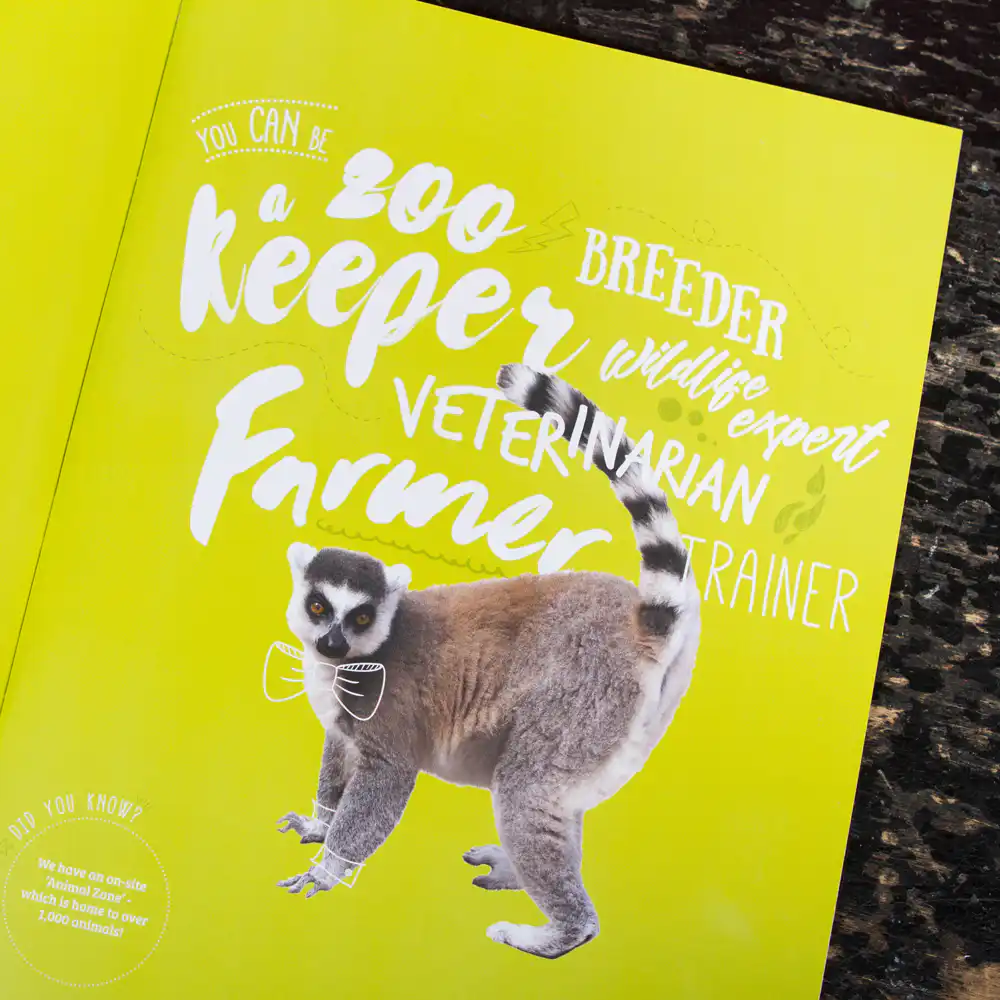 YOU CAN BE
a zoo
Keeper
BREEDER
wildlife
expert
VETERINARIAN
Farmer
TRAINER
DID YOU KNOW?
We have an on-site
'Animal Zone' -
which is home to over
1,000 animals!